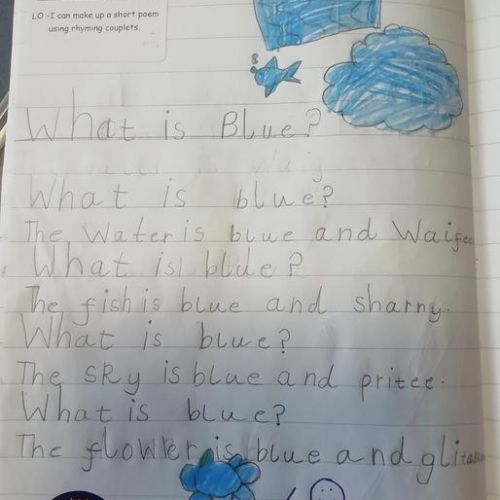 LO -I can make up a short poem
using rhyming couplets.
What is Blue?
What is blue?
The Water is blue and
What is blue?
The fish is blue and sharny.
What is blue?
The sky is blue and pritee.
What is blue?
The flower is blue and